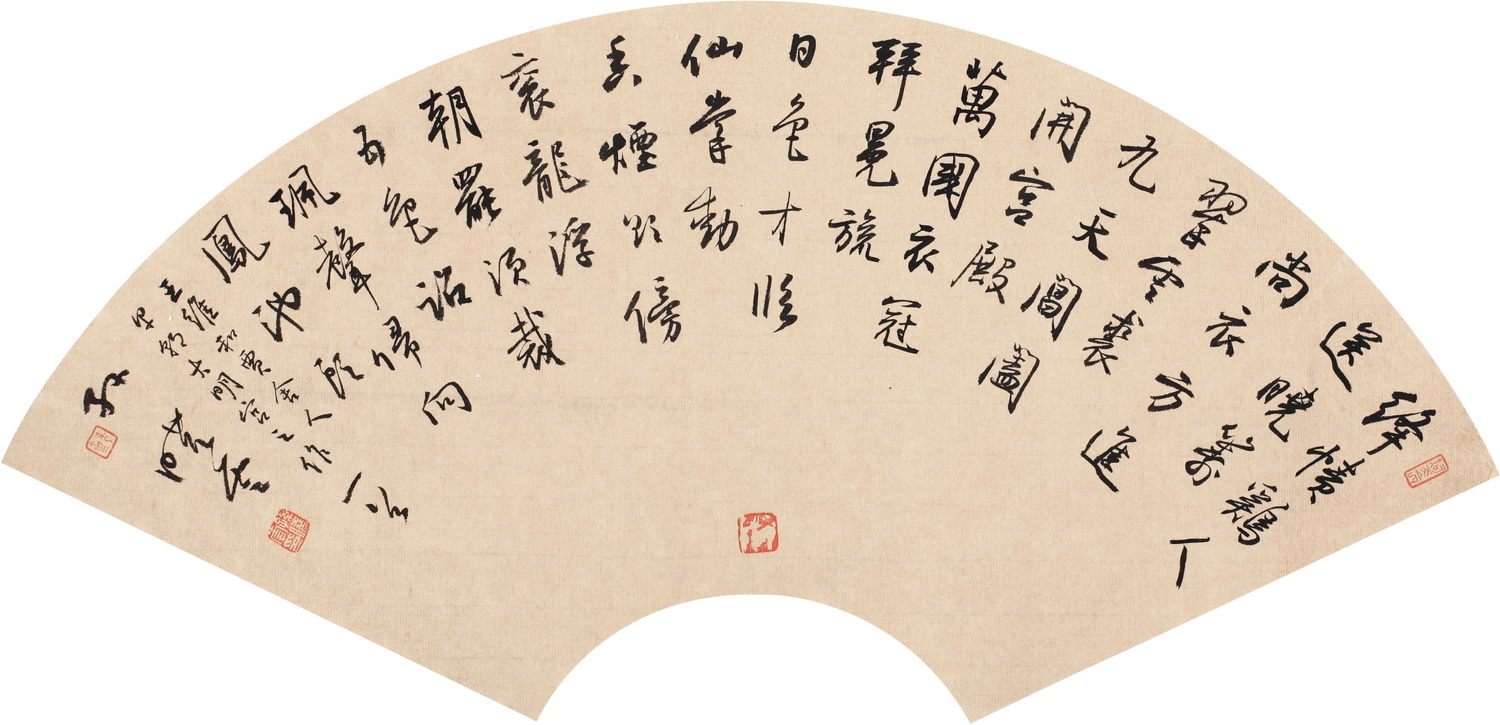 絳幘鷄人
送曉籌
尚衣方進
翠雲裘
九天閶闔
開宮殿
萬國衣冠
拜冕旒
日色才臨
仙掌動
香煙欲傍
袞龍浮
朝罷須裁
五色詔
珮聲歸向
鳳池頭
王維和賈舍人
早朝大明宮之作